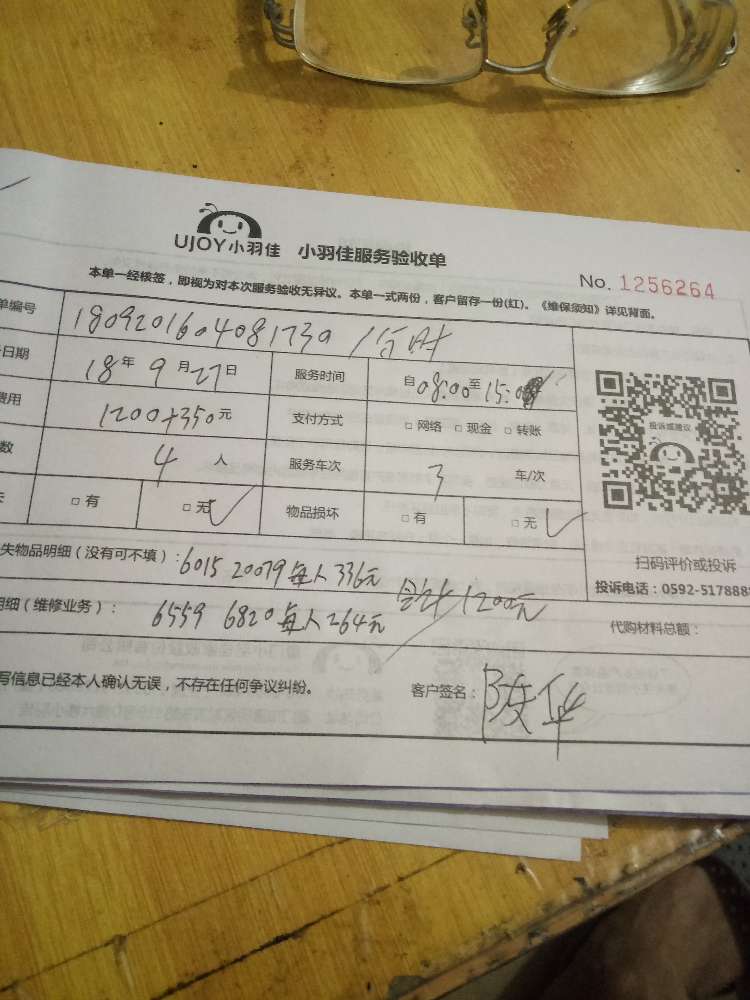 UJOY小羽佳 小羽佳服务验收单
No. 1256264
本单一经核签，即视为对本次服务验收无异议。本单一式两份，客户留存一份(红)。《维保须知》详见背面。
单编号 1809201604081730
日期 18年9月27日 服务时间 自08:00至15:0
费用 1200+350元 支付方式 □ 网络 □ 现金 □ 转账
数 4人 服务车次 3 车/次
□ 有 □ 无 物品损坏 □ 有 □ 无
投诉或建议
扫码评价或投诉
投诉电话：0592-5178888
失物品明细（没有可不填）：6015 20079每人336元 合计1200元
明细（维修业务）： 6559 6820每人264元
代购材料总额：
写信息已经本人确认无误，不存在任何争议纠纷。 客户签名：